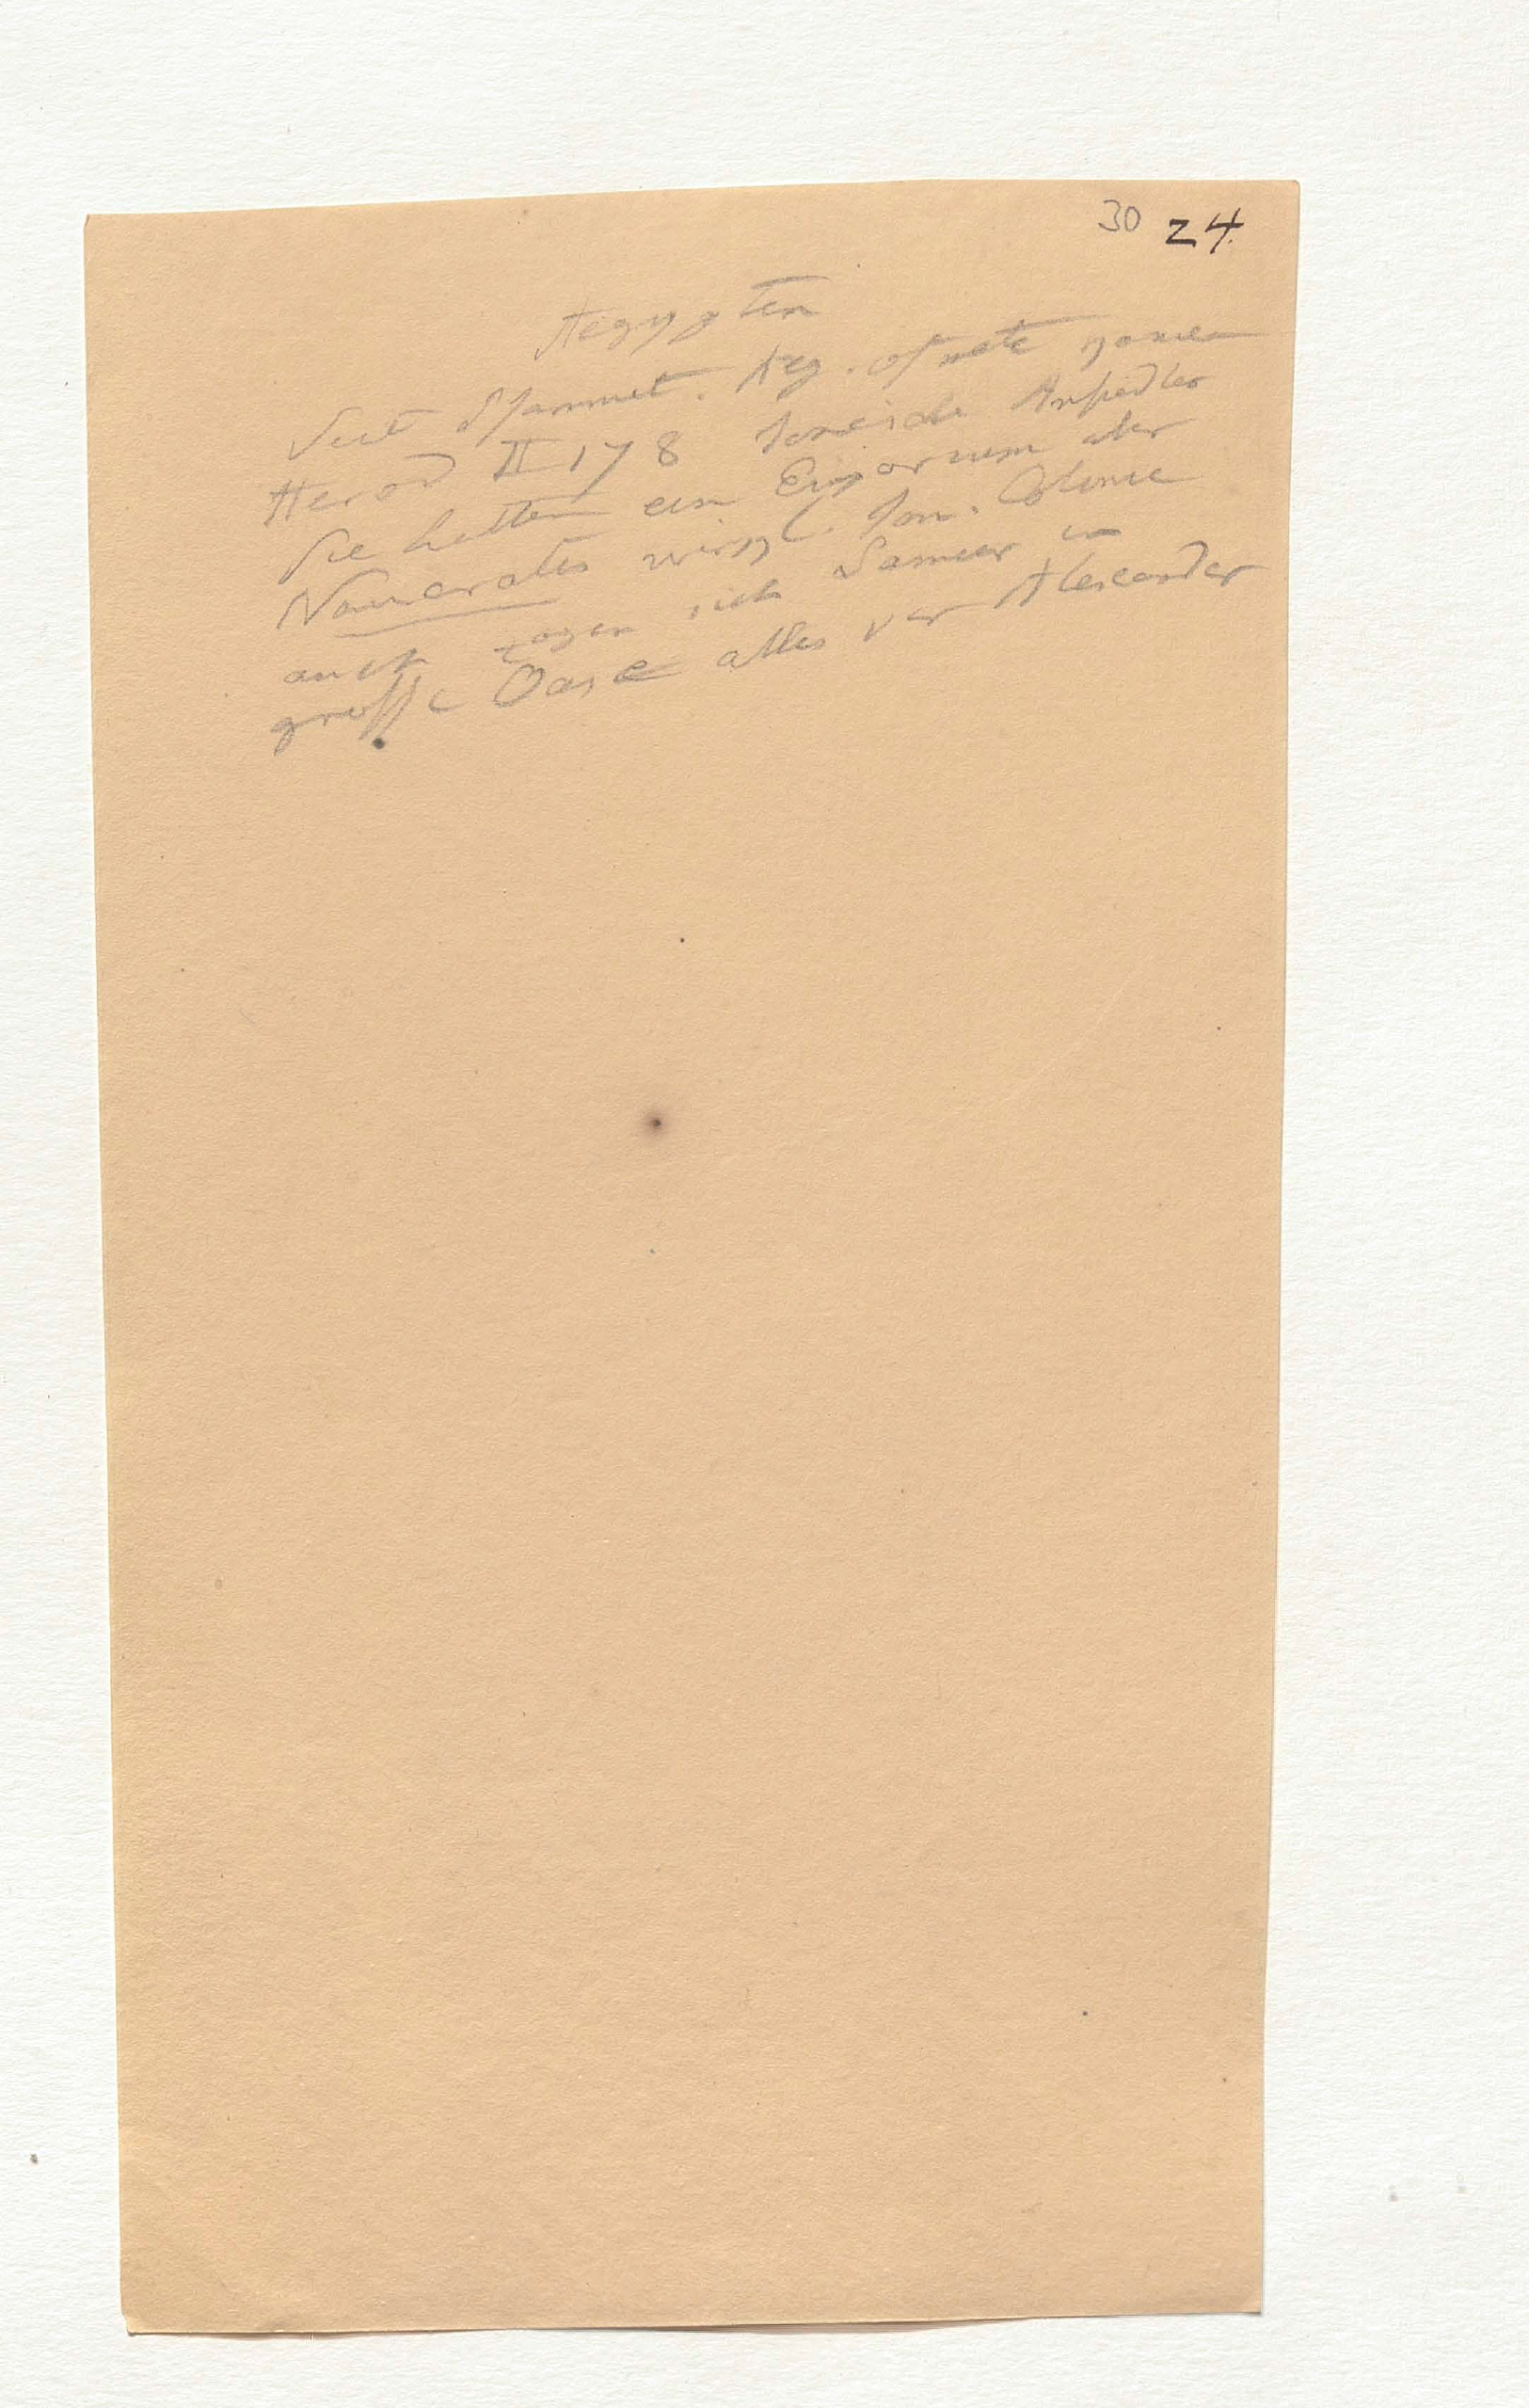 30 24.
Aegypten
Seit Psammet. Aeg. ofnete
Herod II 178 Ionische Ansiedler
Sie hatten ein Emporium aber
Naucratis urspl. Ion. Colonie
auch zogen sich Samier in
große Oase alles vor Alexander